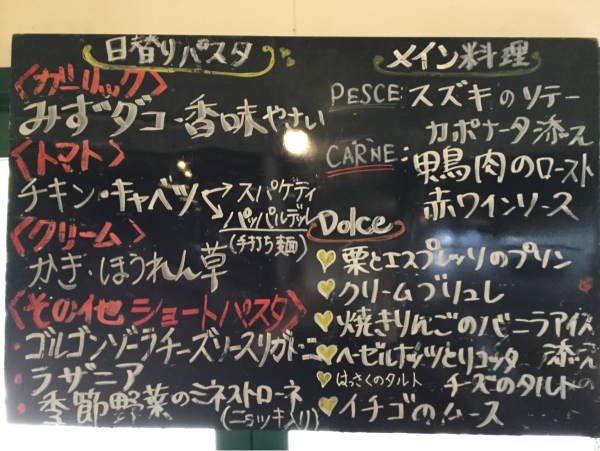 日替りパスタ
〈ガーリック〉
みずダコ・香味やさい
〈トマト〉
チキン・キャベツ
スパゲティ
パッパルデッレ
(手打ち麺)
〈クリーム〉
かき・ほうれん草
〈その他 ショートパスタ〉
・ゴルゴンゾーラチーズソースリガトーニ
・ラザニア
・季節野菜のミネストローネ
(ニョッキ入り)
メイン料理
PESCE:スズキのソテー
カポナータ添え
CARNE:鴨肉のロースト
赤ワインソース
Dolce
栗とエスプレッソのプリン
クリームブリュレ
焼きりんごのバニラアイス
添え
ヘーゼルナッツとリコッタ
チーズのタルト
はっさくのタルト
イチゴのムース